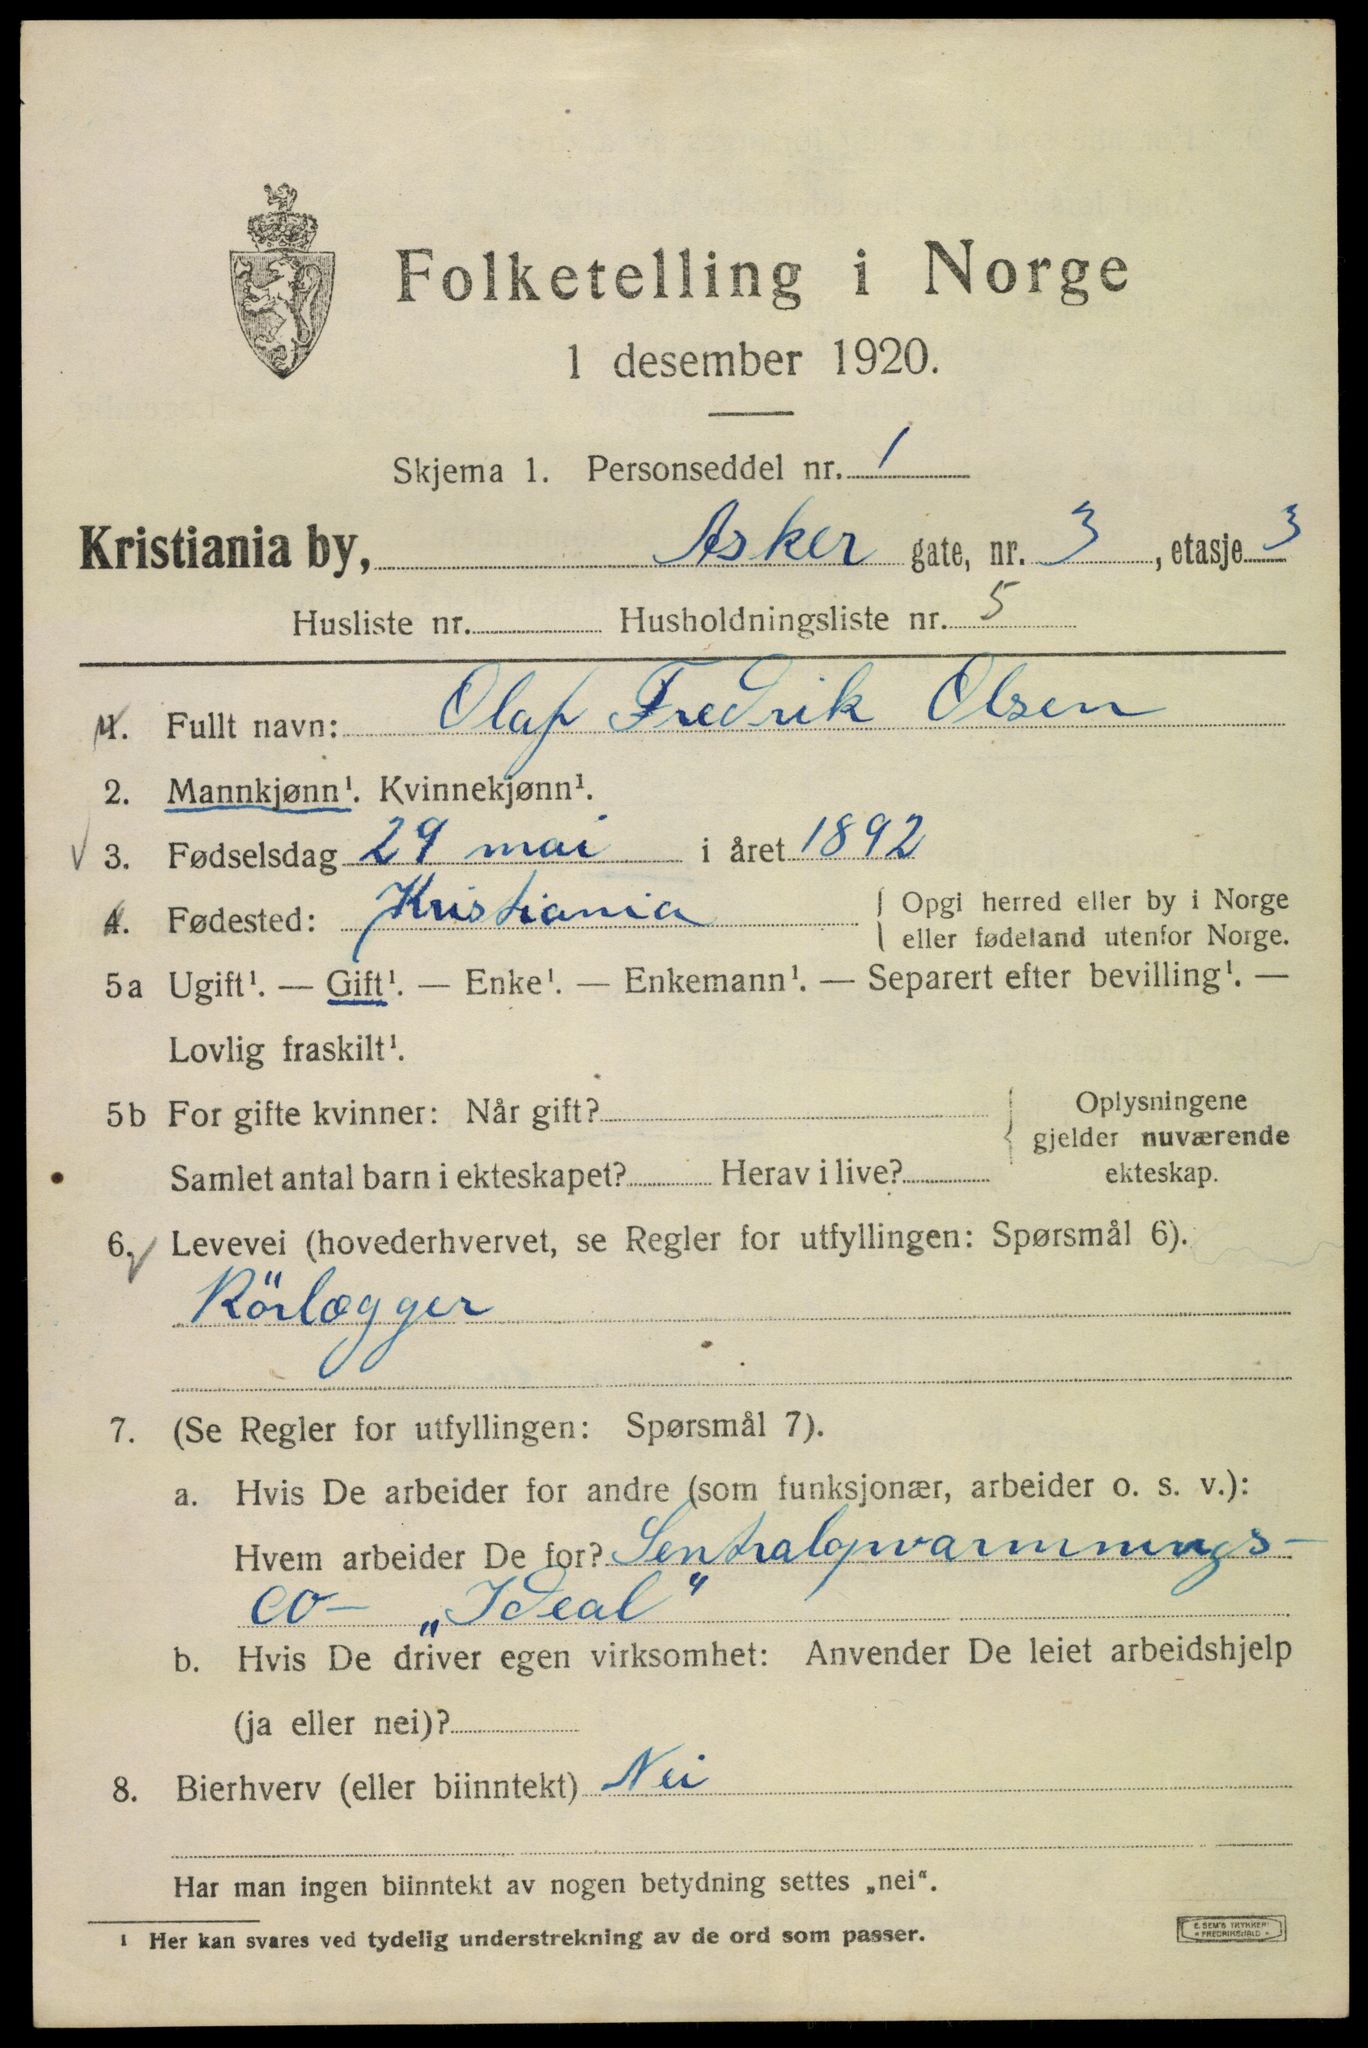 Folketelling i Norge
1 desember 1920.
Skjema 1. Personseddel nr. 1
Kristiania by, Asker gate, nr. 3, etasje 3
Husliste nr. Husholdningsliste nr. 5
1. Fullt navn: Olaf Fredrik Olsen
2. Mannkjønn¹. Kvinnekjønn¹.
3. Fødselsdag 29 mai i året 1892
4. Fødested: Kristiania { Opgi herred eller by i Norge
eller fødeland utenfor Norge.
5a Ugift¹. — Gift¹. — Enke¹. — Enkemann¹. — Separert efter bevilling¹. —
Lovlig fraskilt¹.
5b For gifte kvinner: Når gift? Oplysningene
gjelder nuværende
Samlet antal barn i ekteskapet? Herav i live? ekteskap.
6. Levevei (hovederhvervet, se Regler for utfyllingen: Spørsmål 6).
Rörlægger
7. (Se Regler for utfyllingen: Spørsmål 7).
a. Hvis De arbeider for andre (som funksjonær, arbeider o. s. v.):
Hvem arbeider De for? Sentralopvarmnings-
co- „Ideal"
b. Hvis De driver egen virksomhet: Anvender De leiet arbeidshjelp
(ja eller nei)?
8. Bierhverv (eller biinntekt) Nei
Har man ingen biinntekt av nogen betydning settes „nei".
¹ Her kan svares ved tydelig understrekning av de ord som passer.
E. SEM'S TRYKKERI
FREDRIKSHALD